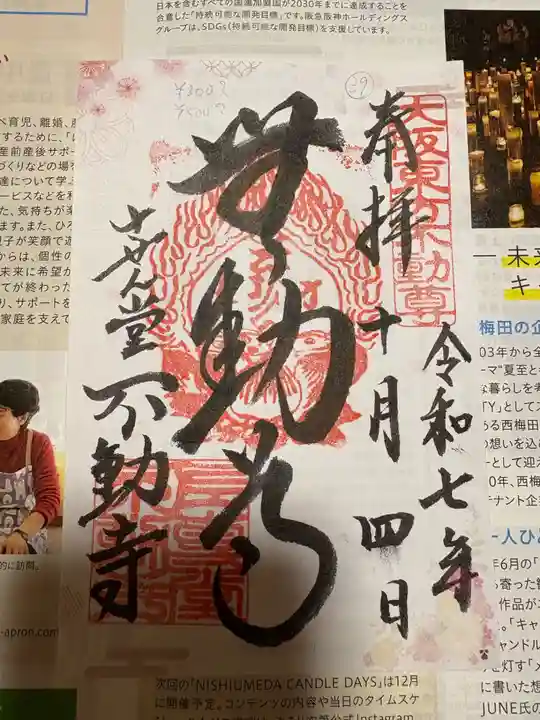 日本を含むすべての国連加盟国が2030年までに達成することを
合意した「持続可能な開発目標」です。阪急阪神ホールディングス
グループは、SDGs(持続可能な開発目標)を支援しています。
大阪東方不動尊
奉拝
令和七年
十月四日
29
¥300?
¥500?
不動寺
べ育児、離婚、
するために、
産前産後サポー
づくりなどの場
達について学ぶ
ービスなどを利
た、気持ちが楽
ます。また、ひろ
子が笑顔で
からは、個性の
未来に希望が
てが終わった
り、サポートを
家庭を支えて
的に訪問。
-apron.com
未来
キャ
梅田の企
03年から全
ーマ“夏至と
な暮らしを考
TY」としてス
ある西梅田
の想いを込
ーとして迎え
0年、西梅
テナント企
一人ひ
年6月の「
ら寄った
作品がこ
。「キャ
ャンドル
を灯す「メ
に書いた想
JUNE氏の
次回の「NISHIUMEDA CANDLE DAYS」は12月
に開催予定。コンテンツの内容や当日のタイムスケ